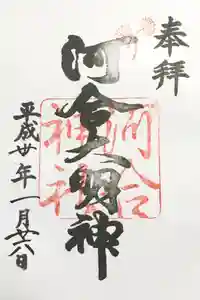 奉拝
河合大明神
河合神社
平成廿年一月廿六日